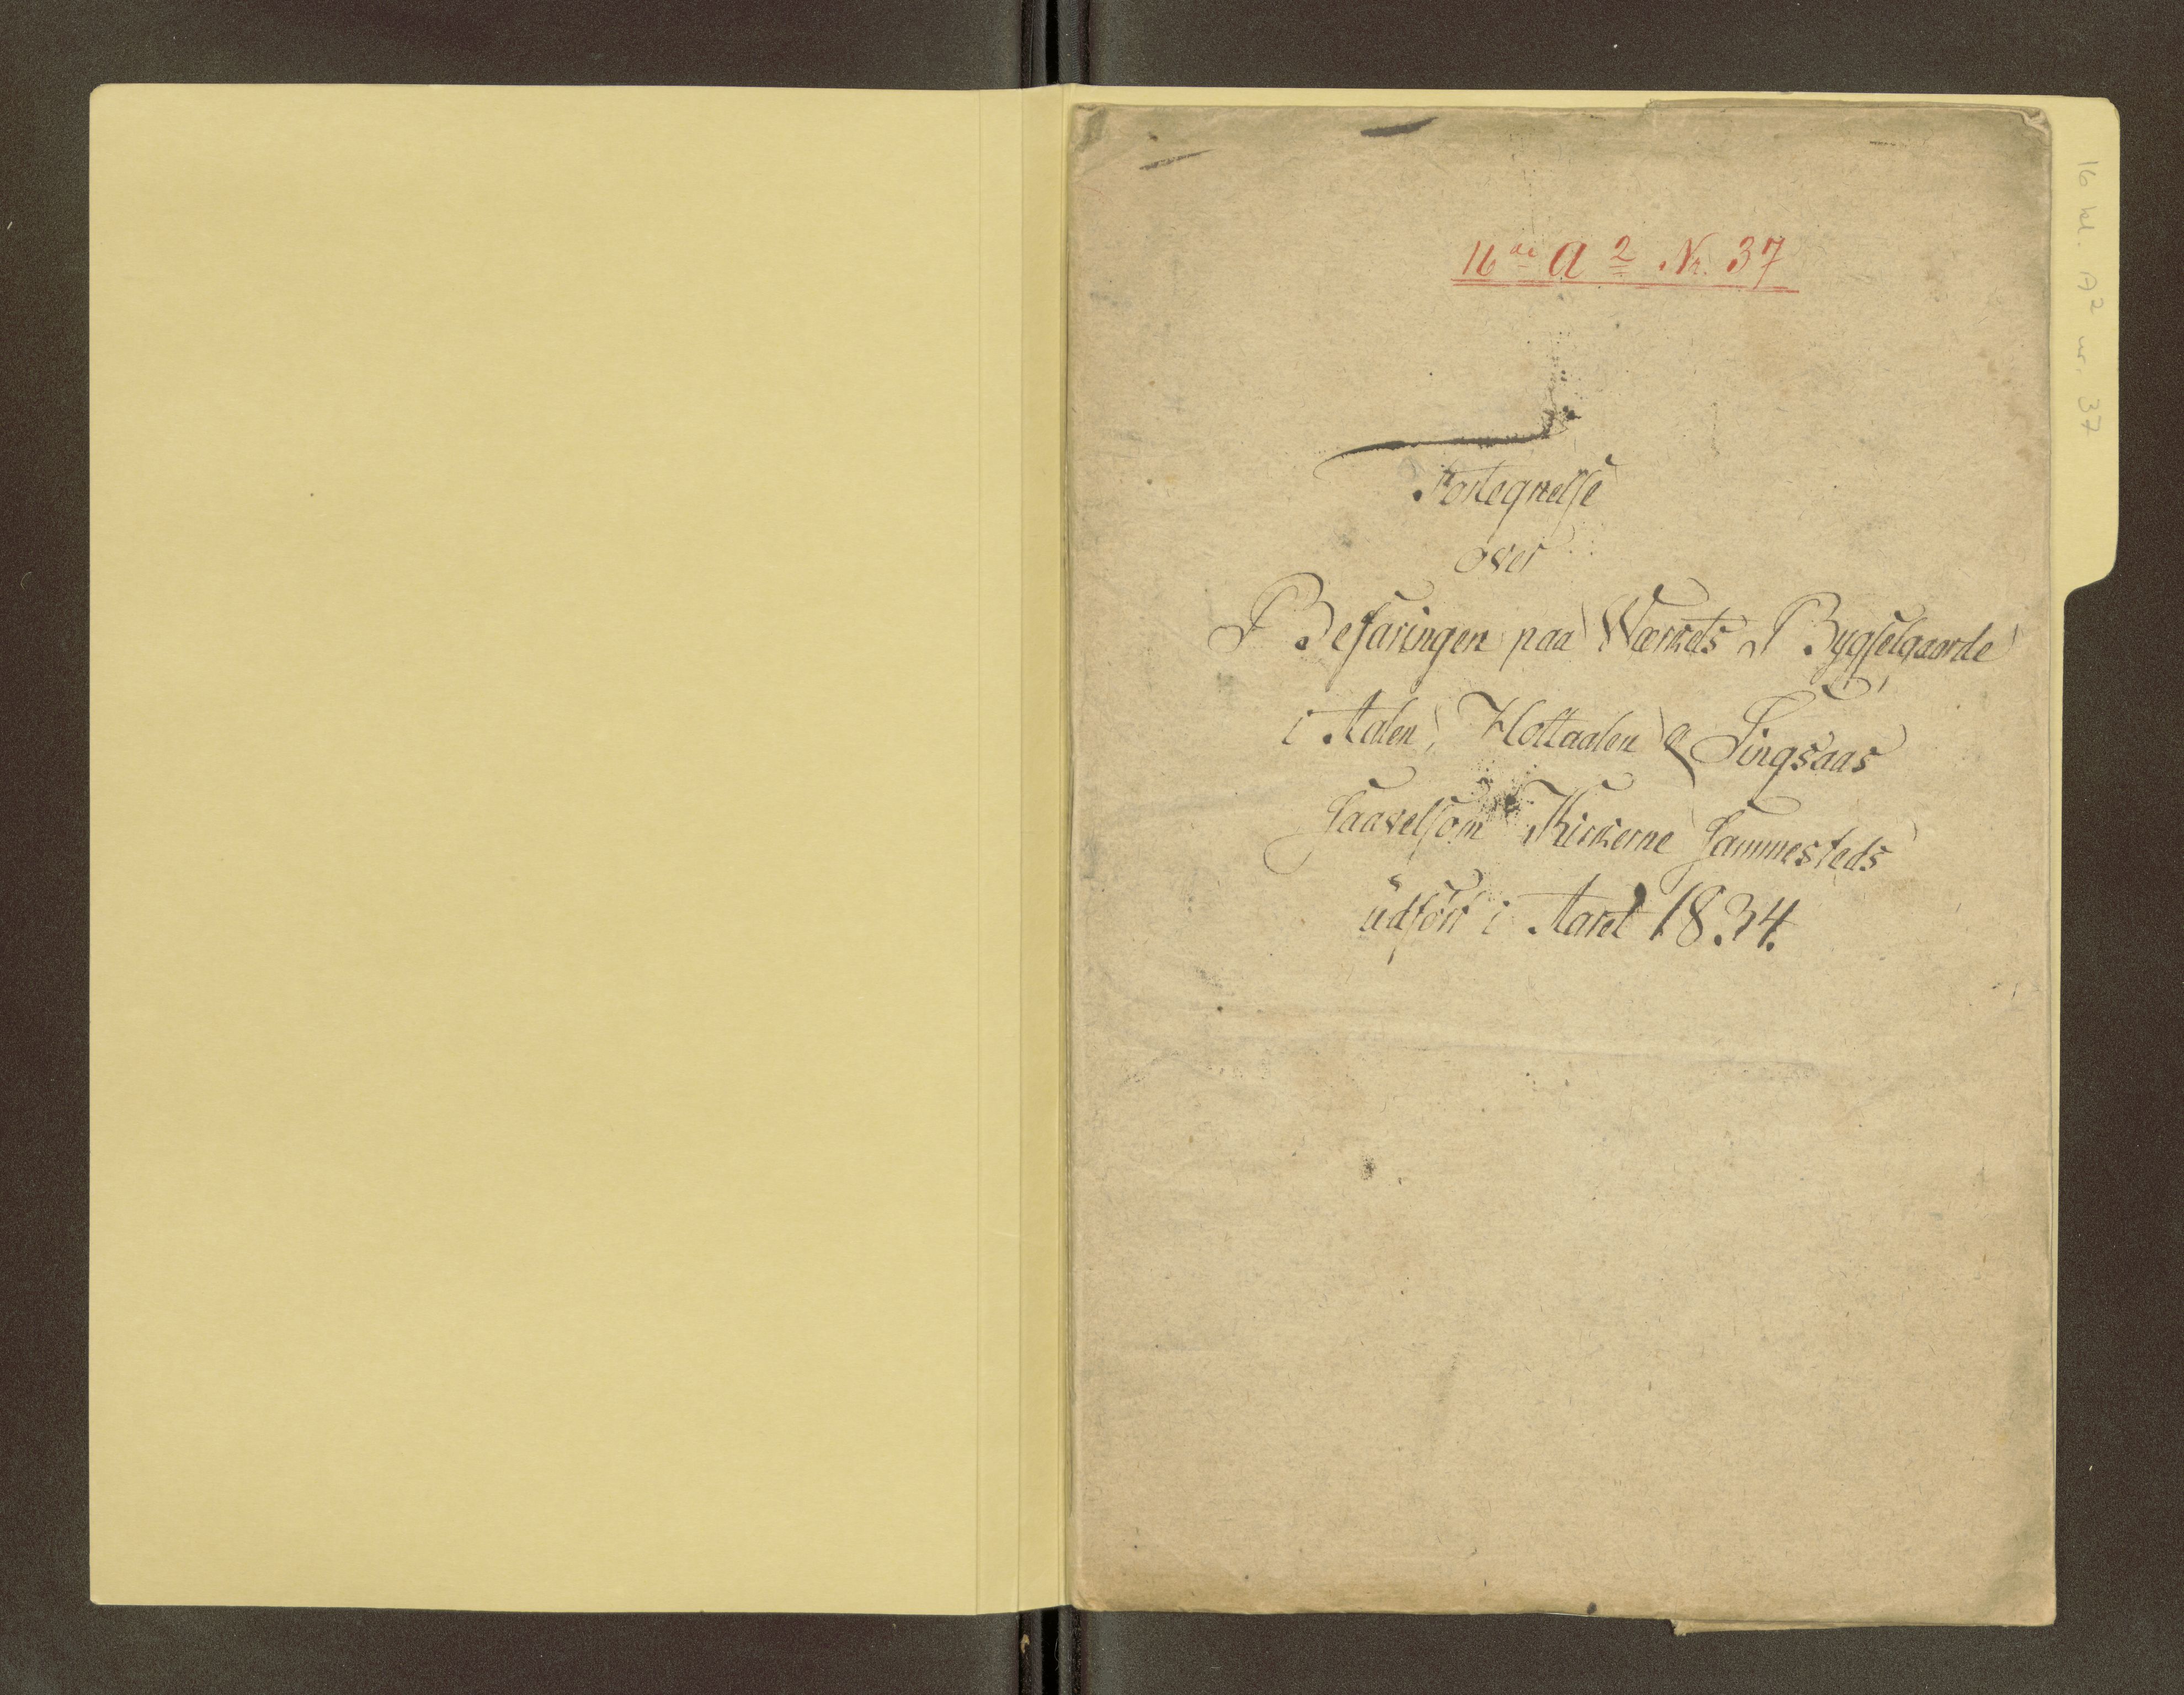 16de A 2 Nr. 37
Fortegnelse
over
Befaringen paa Værkets Bygselgaarde
i Aalen, Holtaalen & Singsaas
saavelsom Kirkerne sammesteds
udført i Aaret 1834.
16 kl. A2 nr. 37